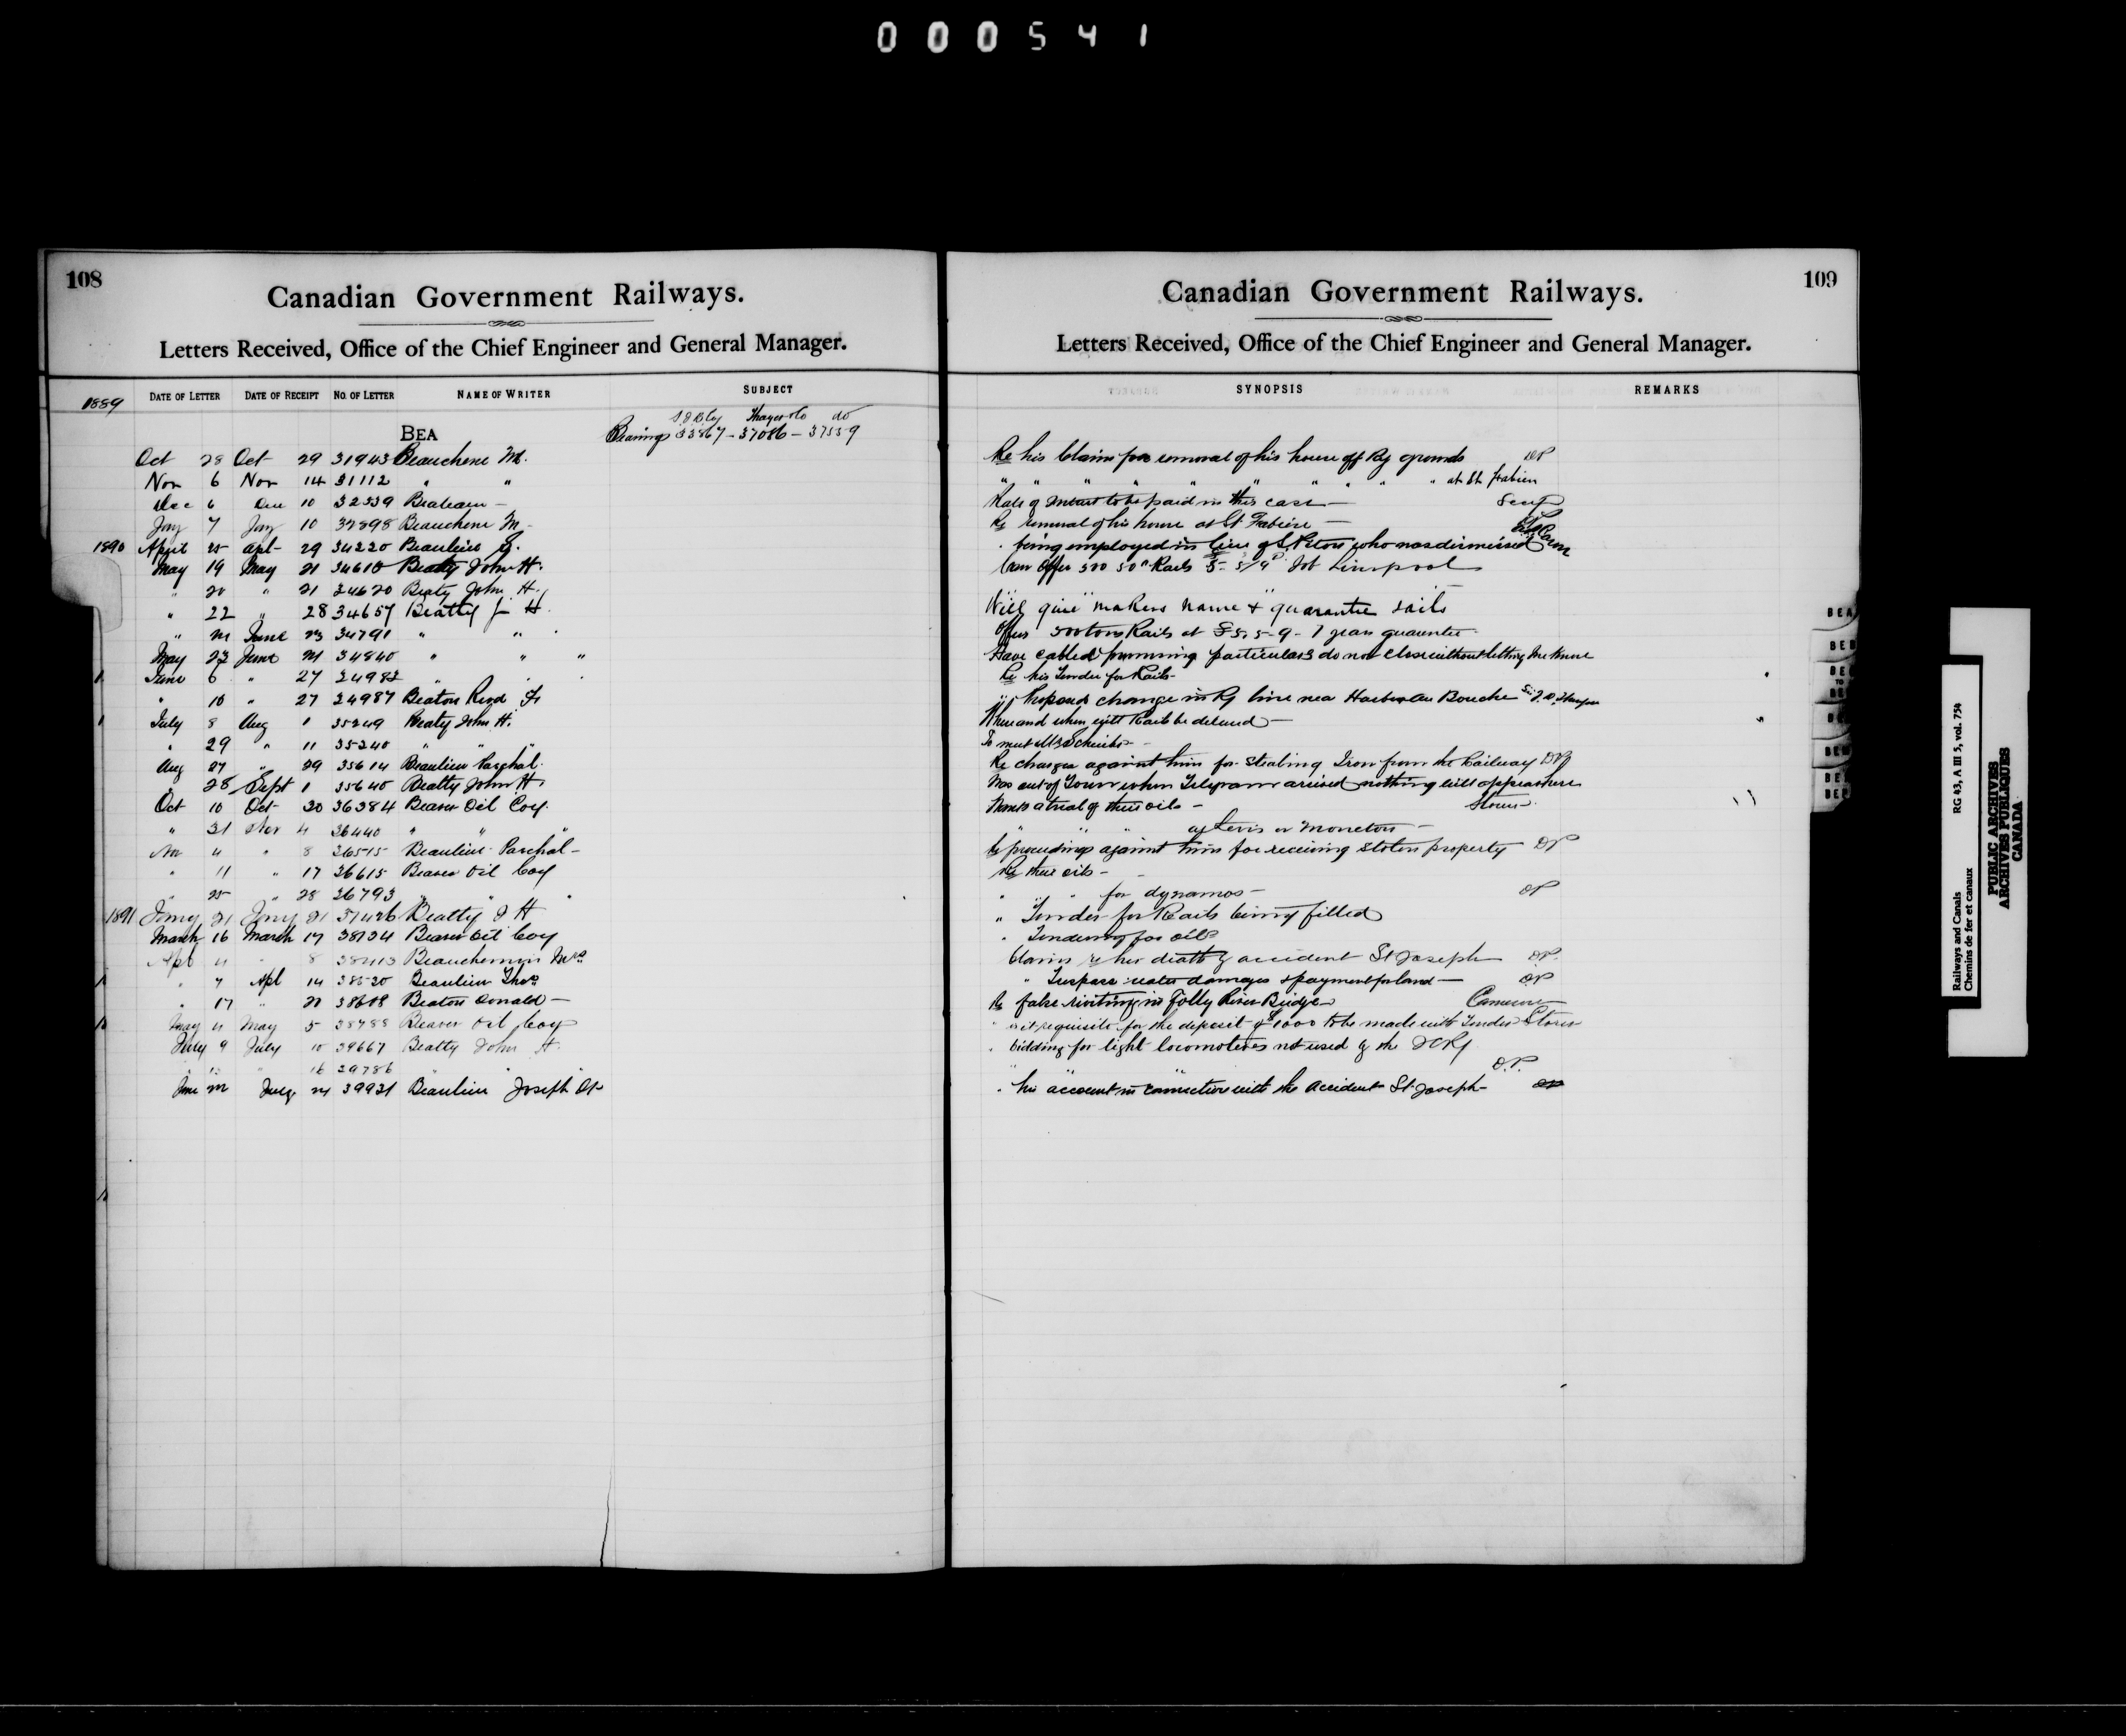 000541
108
Canadian Government Railways.
Letters Received, Office of the Chief Engineer and General Manager.
1889 DATE OF LETTER DATE OF RECEIPT NO. OF LETTER NAME OF WRITER SUBJECT
Thayer & Co do
BEA Bearings 33867 - 37086 - 37559
Oct 28 Oct 29 31943 Beauchene M.
Nov 6 Nov 14 31112 " "
Dec 6 Dec 10 32539
Jay 7 Jay 10 32898 Beauchene M -
1890 April 25 Apl 29 34220 Beaulieu
May 19 May 21 34610 Beaty John H.
" 20 " 21 34620 Beaty John H.
" 22 " 28 34657 Beatty J H.
" 21 June 23 34791 " "
May 23 June 21 34840 " " "
June 6 " 27 24982 " " "
" 10 " 27 24987 Beaton Revd Fr
July 8 Aug 1 35249 Beaty John H.
" 29 " 11 35240 " " "
Aug 27 " 29 35614 Beaulieu Paschal.
" 28 Sept 1 35640 Beatty John H.
Oct 10 Oct 30 36384 Beaver Oil Coy.
" 31 Nov 4 36440 " " "
Nov 4 " 8 36515 Beaulieu Paschal -
" 11 " 17 36615 Beaver Oil Coy
" 25 " 28 36793 " " "
1891 Jany 21 Jany 21 37426 Beatty J H
March 16 March 17 38134 Beaver Oil Coy
Apl 4 " 8 38413 Beauchemin Mrs
" 7 Apl 14 38520 Beaulieu Thos
" 17 " 21 38608 Beaton Donald -
May 4 May 5 38788 Beaver Oil Coy
July 9 July 10 39667 Beatty John H.
" " 16 39786 " "
June July 21 39931 Beaulieu Joseph
109
Canadian Government Railways.
Letters Received, Office of the Chief Engineer and General Manager.
SYNOPSIS REMARKS
Re his Claim for removal of his house off Ry grounds DP
" " " " " " " " at St Fabien
Rate of to be paid in this case -
Re removal of his house at St Fabien -
" being employed in lieu of who was dismissed
Can offer 500 50 Rails 5- 5/9 fob Liverpool
Will give makers name & guarantee rails
Offers 500 tons Rails at £5, 5-9 - 7 years guarantee
Have cabled particulars do not close without letting me know
Re his Tender for Rails -
" Proposed change in Ry line near Harbor au Bouche
Where and when will Rails be delivered -
To meet Mr Schreiber -
Re charges against him for Stealing Iron from the Railway DP
Was out of Town when Telegram arrived nothing till appears here
Wants a trial of their oils - Stores
" " " at Levis or Moncton -
Re proceedings against him for receiving stolen property DP
Re their oils -
" " " for dynamos - DP
" Tender for Rails being filled
" Tendering for oils
Claims re her death by accident St Joseph DP
" Trespass water damages & payment for land - DP
Re false rivetting in Folly River Bridge Cameron
" requisite for the deposit of $1000 to be made with Tender Stores
" bidding for light locomotives not used by the ICRy
" " D.P.
" his account in connection with the accident St Joseph - DP
BEA
BEB
Railways and Canals RG 43, A III 5, vol. 754
Chemins de fer et canaux
PUBLIC ARCHIVES
ARCHIVES PUBLIQUES
CANADA